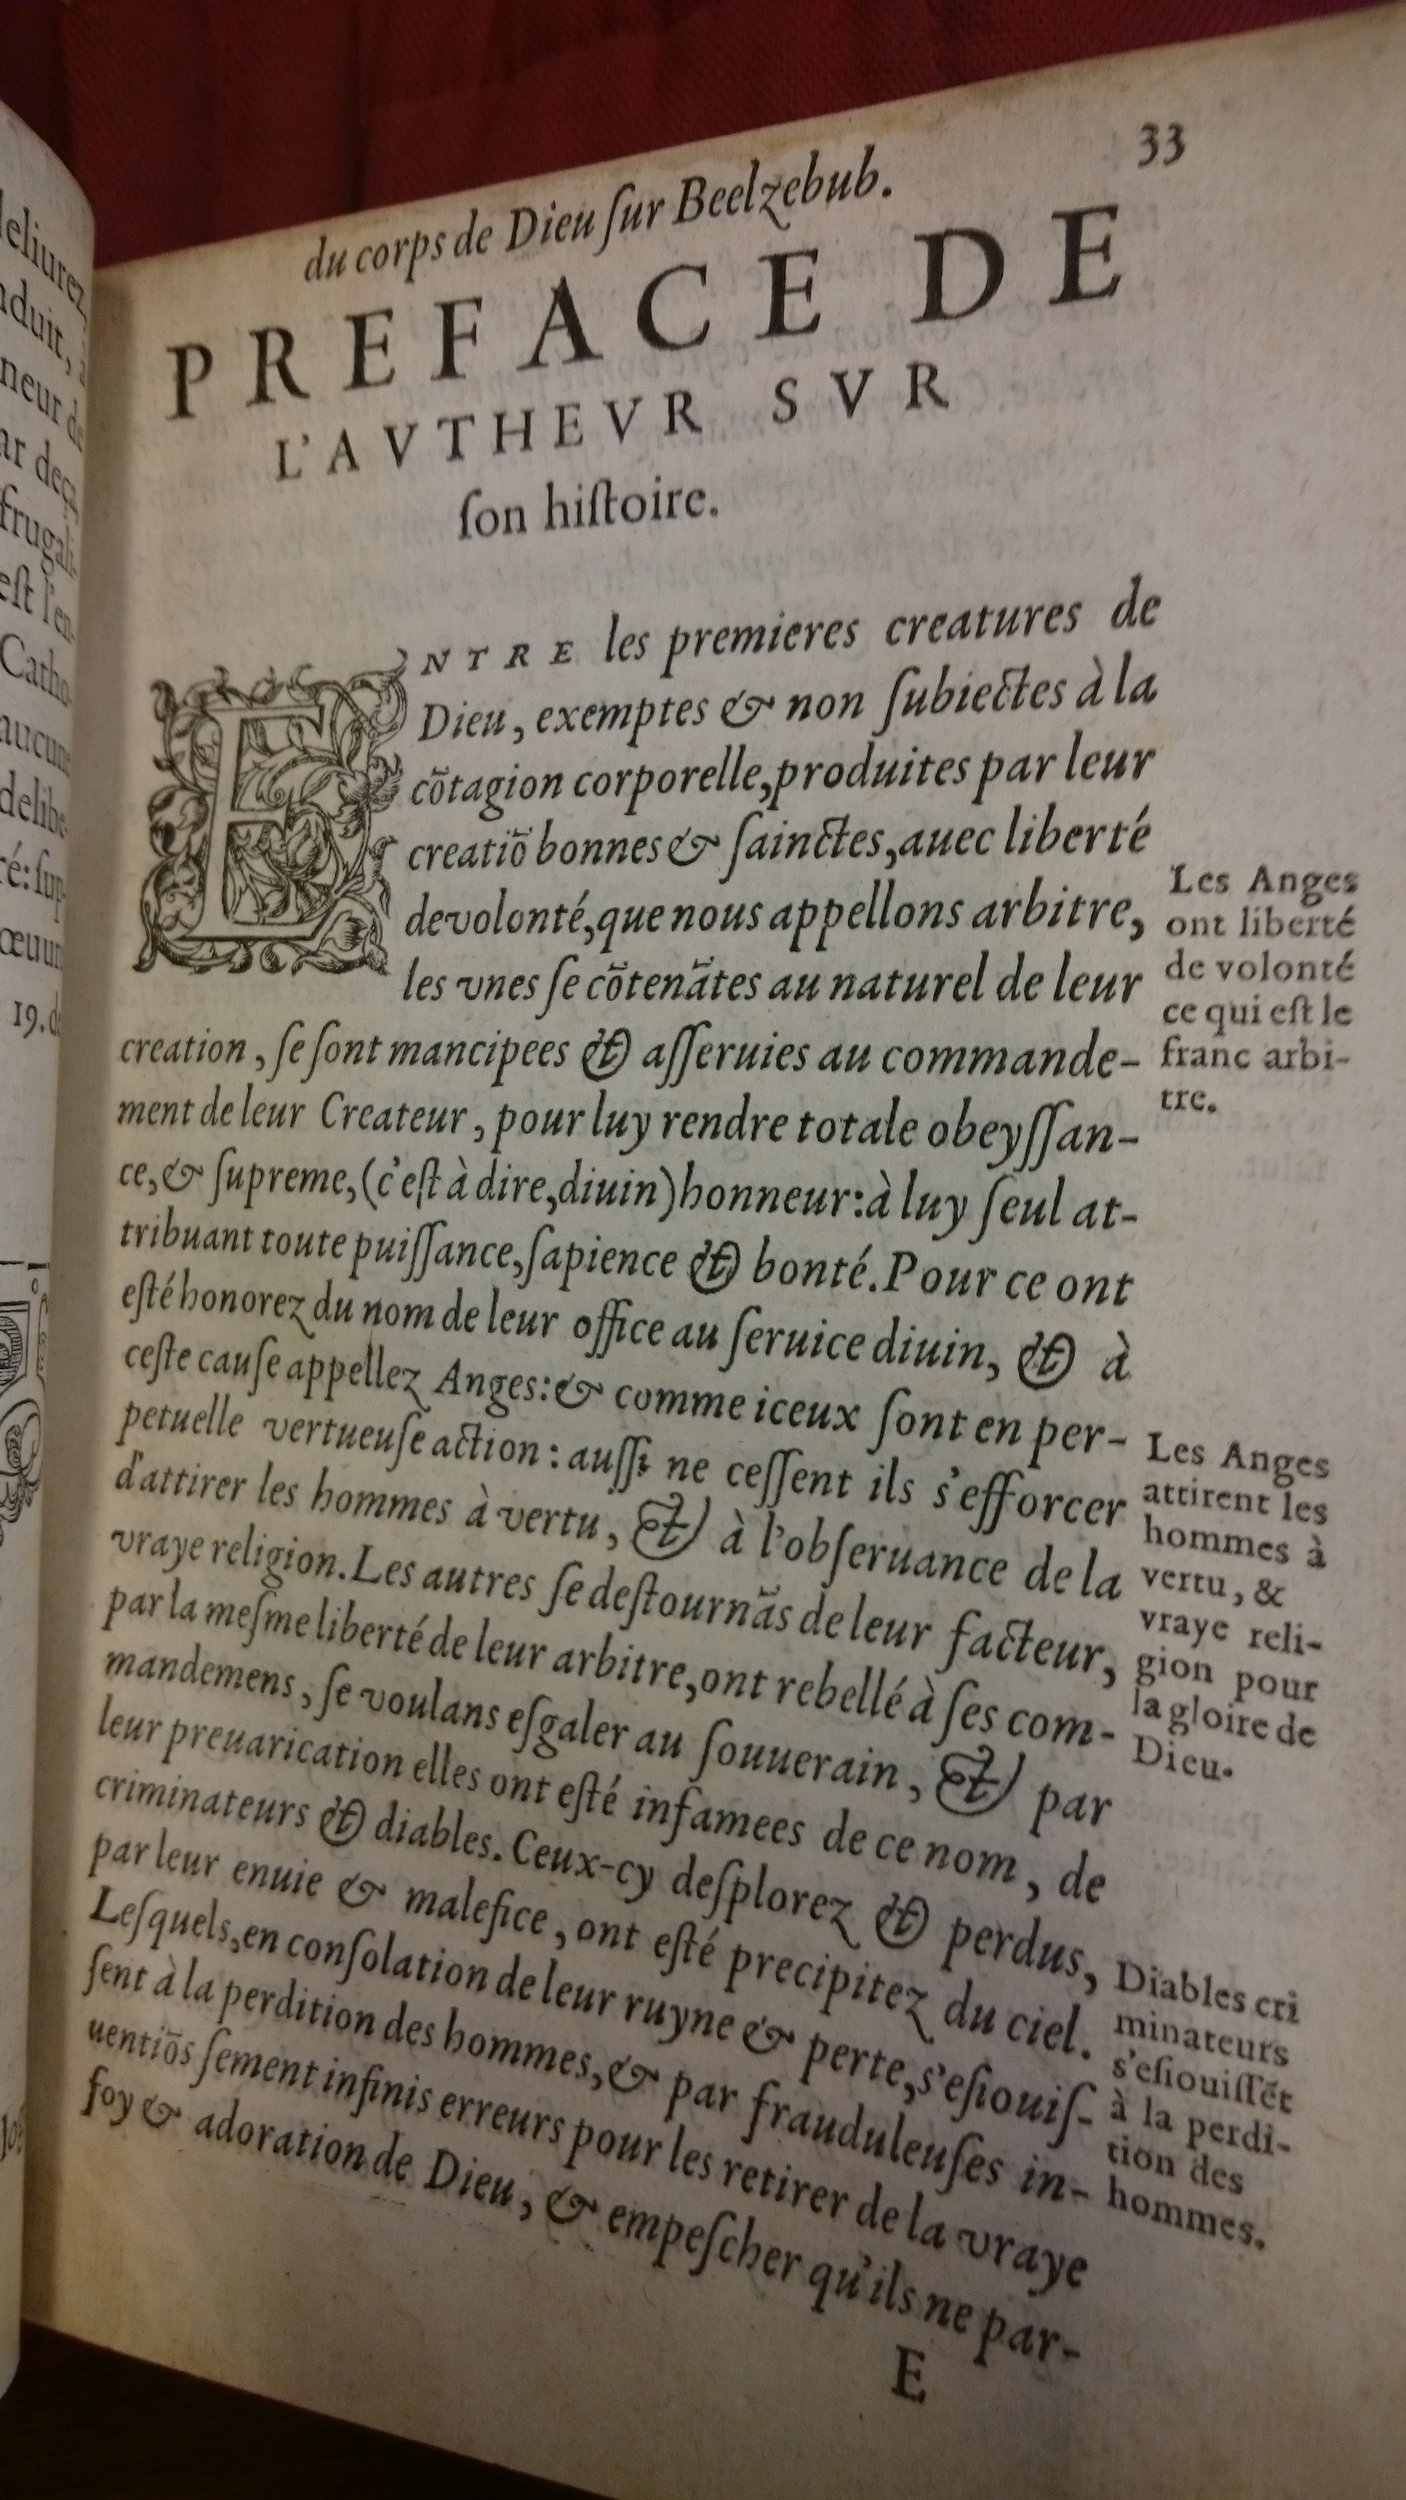 33
du corps de Dieu ſur Beelzebub.
PREFACE DE
L'AVTHEVR SVR
ſon hiſtoire.
ENTRE les premieres creatures de
Dieu, exemptes & non ſubiectes à la
cõtagion corporelle, produites par leur
creatiõ bonnes & ſainctes, auec liberté
de volonté, que nous appellons arbitre,
les vnes ſe cõtenãtes au naturel de leur
creation, ſe ſont mancipees & aſſeruies au commande-
ment de leur Createur, pour luy rendre totale obeyſſan-
ce, & ſupreme, (c'eſt à dire, diuin) honneur: à luy ſeul at-
tribuant toute puiſſance, ſapience & bonté. Pour ce ont
eſté honorez du nom de leur office au ſeruice diuin, & à
ceſte cauſe appellez Anges: & comme iceux ſont en per-
petuelle vertueuſe action: auſſi ne ceſſent ils s'efforcer
d'attirer les hommes à vertu, & à l'obſeruance de la
vraye religion. Les autres ſe deſtournãs de leur facteur,
par la meſme liberté de leur arbitre, ont rebellé à ſes com-
mandemens, ſe voulans eſgaler au ſouuerain, & par
leur preuarication elles ont eſté infamees de ce nom, de
criminateurs & diables. Ceux-cy deſplorez & perdus,
par leur enuie & malefice, ont eſté precipitez du ciel.
Leſquels, en conſolation de leur ruyne & perte, s'eſiouiſ-
ſent à la perdition des hommes, & par frauduleuſes in-
uentiõs ſement infinis erreurs pour les retirer de la vraye
foy & adoration de Dieu, & empeſcher qu'ils ne par-
E
Les Anges
ont liberté
de volonté
ce qui eſt le
franc arbi-
tre.
Les Anges
attirent les
hommes à
vertu, &
vraye reli-
gion pour
la gloire de
Dieu.
Diables cri
minateurs
s'eſiouiſſẽt
à la perdi-
tion des
hommes.